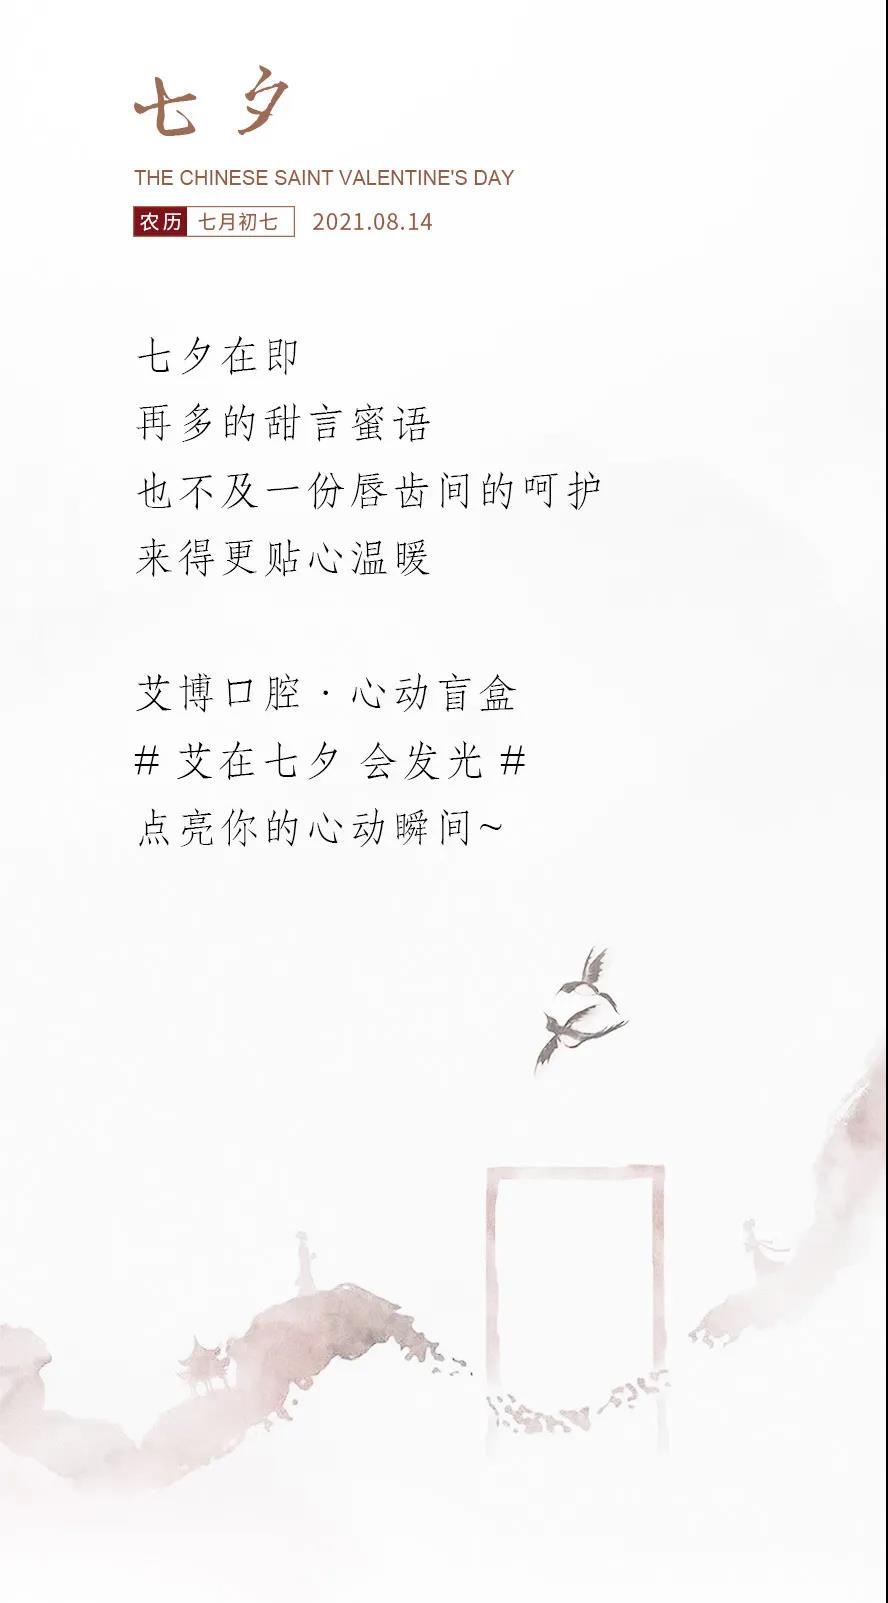 七夕
THE CHINESE SAINT VALENTINE'S DAY
农历 七月初七 2021.08.14
七夕在即
再多的甜言蜜语
也不及一份唇齿间的呵护
来得更贴心温暖
艾博口腔·心动盲盒
# 艾在七夕 会发光 #
点亮你的心动瞬间~